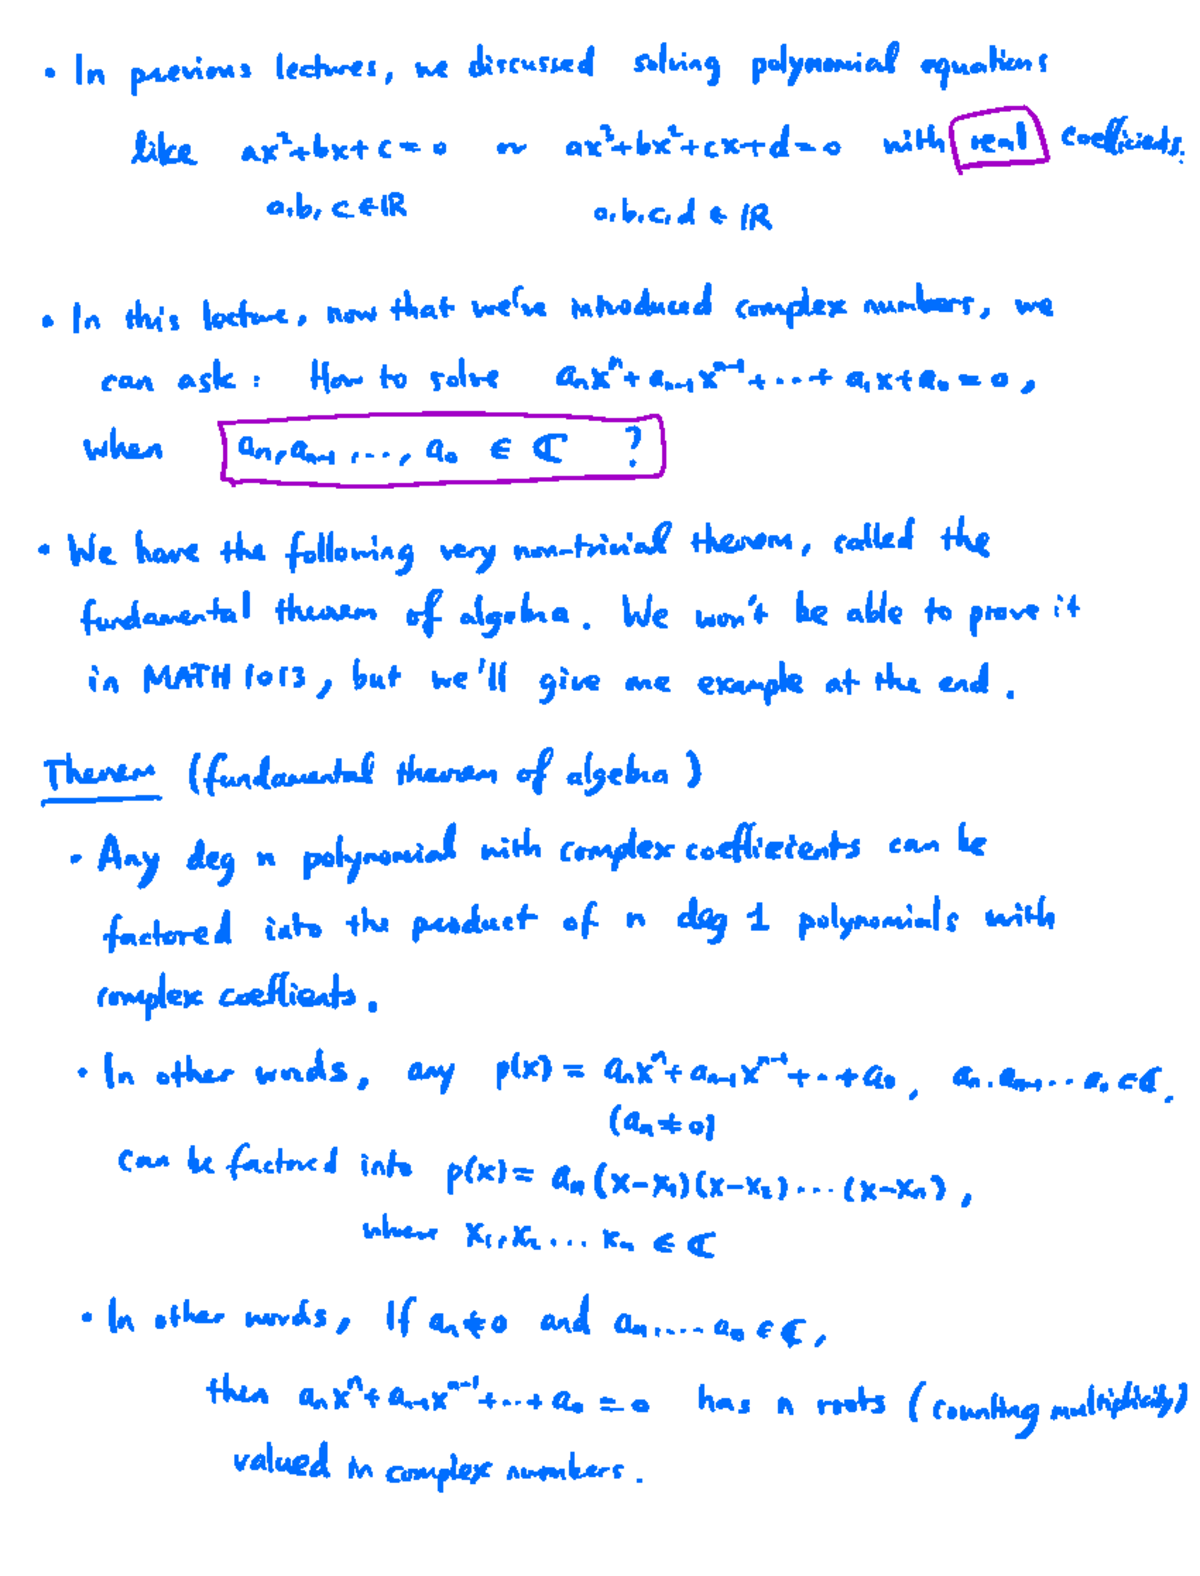 • In previous lectures, we discussed solving polynomial equations
like ax²+bx+c=0 or ax³+bx²+cx+d=0 with real coefficients.
a,b,c∈ℝ a,b,c,d∈ℝ
• In this lecture, now that we've introduced complex numbers, we
can ask: How to solve aₙxⁿ+aₙ₋₁xⁿ⁻¹+...+a₁x+a₀=0,
when aₙ,aₙ₋₁...,a₀ ∈ ℂ ?
• We have the following very non-trivial theorem, called the
fundamental theorem of algebra. We won't be able to prove it
in MATH 1013, but we'll give one example at the end.
Theorem (fundamental theorem of algebra)
• Any deg n polynomial with complex coeffiecients can be
factored into the product of n deg 1 polynomials with
complex coeffients.
• In other words, any p(x) = aₙxⁿ+aₙ₋₁xⁿ⁻¹+...+a₀, aₙ,aₙ₋₁...a₀∈ℂ,
(aₙ≠0)
can be factored into p(x) = aₙ(x-x₁)(x-x₂)...(x-xₙ),
where x₁,x₂...xₙ ∈ ℂ
• In other words, If aₙ≠0 and aₙ,...a₀∈ℂ,
then aₙxⁿ+aₙ₋₁xⁿ⁻¹+...+a₀=0 has n roots (counting multiplicity)
valued in complex numbers.